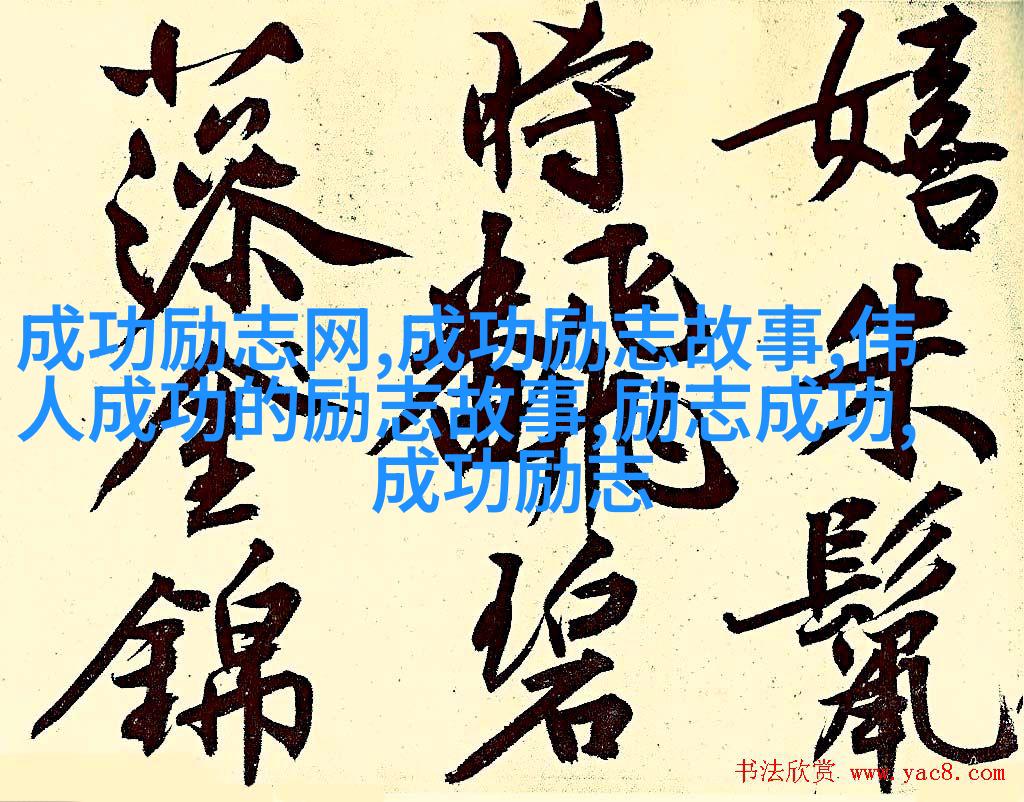 嬉朱鬣
時飜碧
藻錦
成功励志网,成功励志故事,伟
人成功的励志故事,励志成功,
成功励志
书法欣赏 www.yac8.com